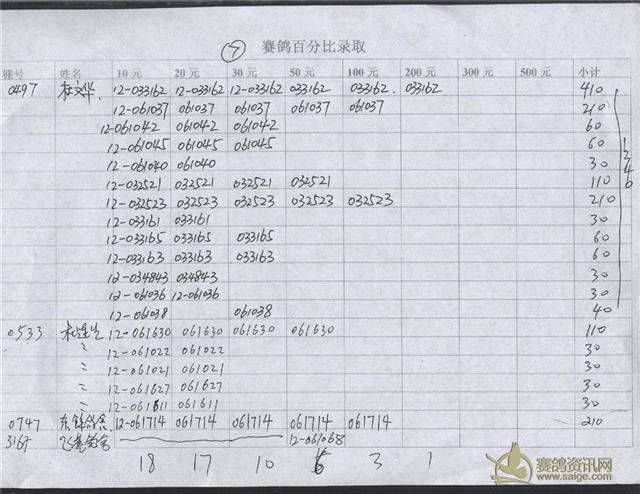 ⑦ 赛鸽百分比录取
棚号 姓名 10 元 20 元 30 元 50 元 100 元 200 元 300 元 500 元 小计
0497 杜文华. 12-033162 12-033162 12-033162 033162 033162. 033162 410
12-061037 061037 061037 061037 061037 210
12-061042 061042 061042 60
12-061045 061045 061045 60
12-061040 061040 30
12-032521 032521 032521 032521 110
12-032523 032523 032523 032523 032523 210
12-033161 033161 30
12-033165 033165 033165 60
12-033163 033163 033163 60
12-034843 034843 30
12-061036 12-061036 30
12-061038 061038 40
1340
0533 12-061630 061630 061630 061630 110
〃 12-061022 061022 30
〃 12-061021 061021 30
〃 12-061627 061627 30
〃 12-061611 061611 30
0747 12-061714 061714 061714 061714 061714 210
12-061068
18 17 10 6 3 1
赛鸽资讯网
www.saige.com